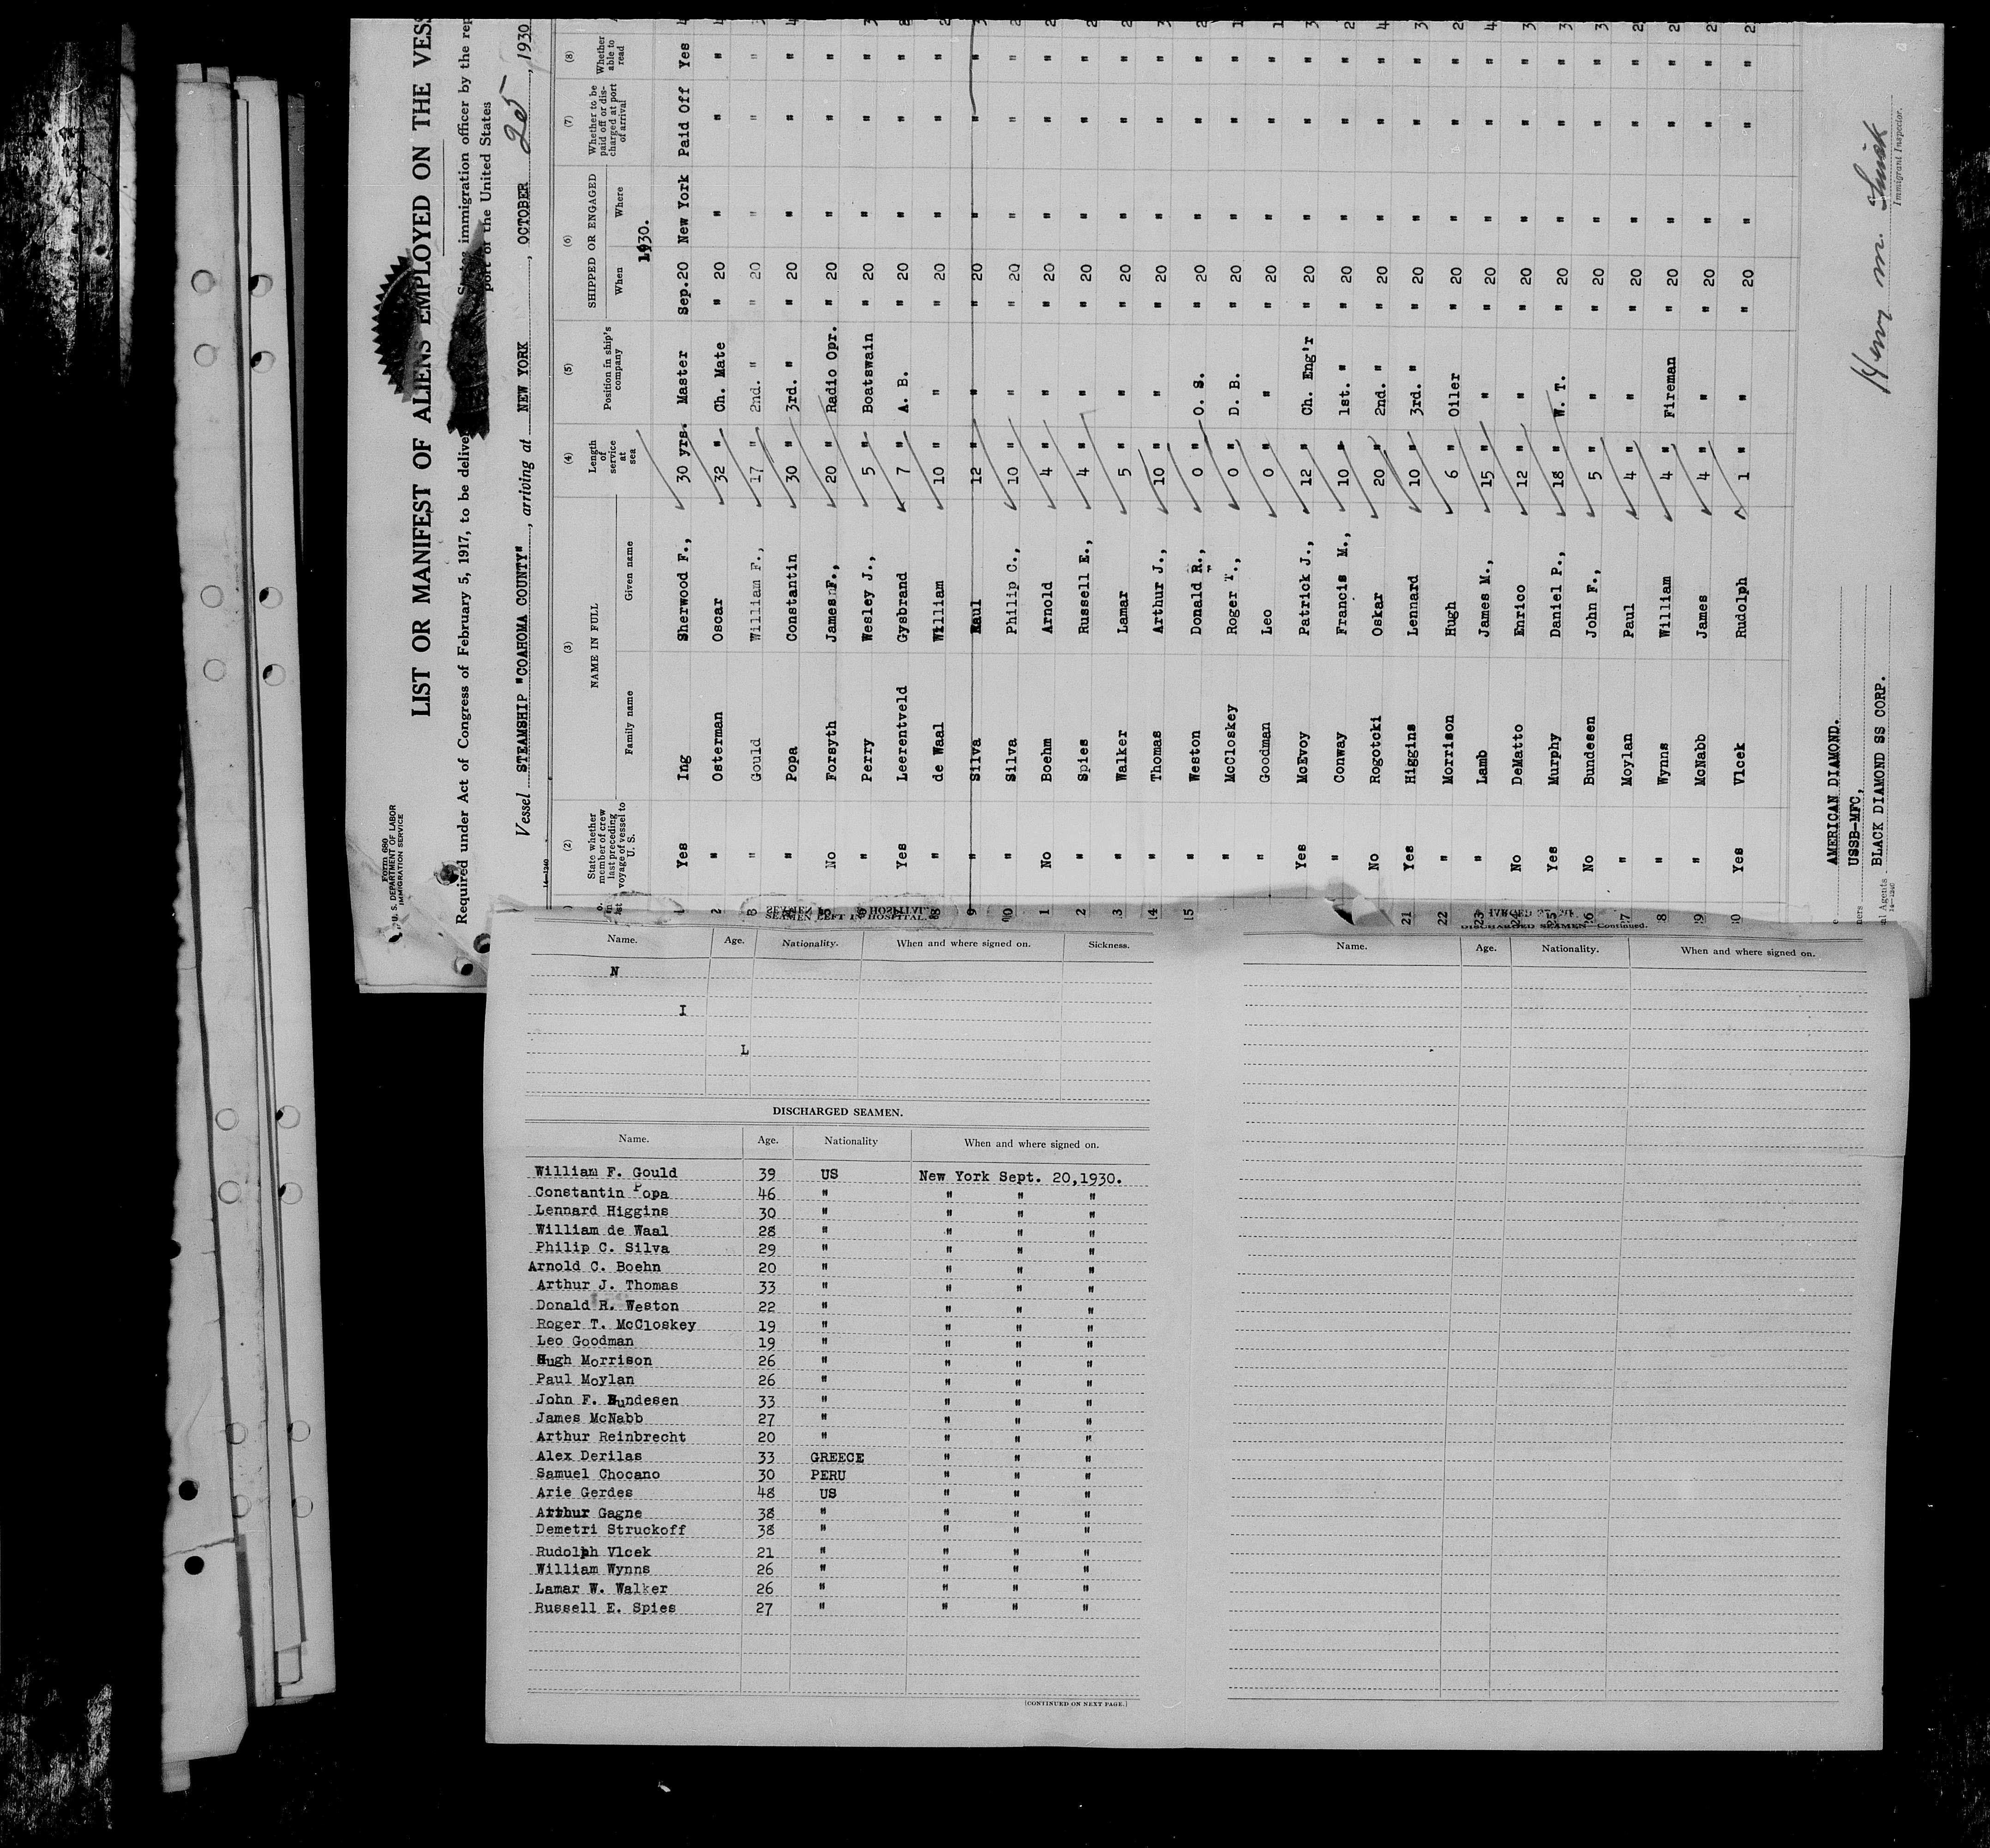 Form 680
U. S. DEPARTMENT OF LABOR
IMMIGRATION SERVICE
LIST OR MANIFEST OF ALIENS EMPLOYED ON THE VESS
Required under Act of Congress of February 5, 1917, to be deliver immigration officer by the rep
port of the United States
Vessel STEAMSHIP "COAHOMA COUNTY", arriving at NEW YORK, OCTOBER 20, 1930
14-1240
(2) (3) (4) (5) (6) (7) (8)
State whether member of crew last preceding voyage of vessel to U. S.
NAME IN FULL
Family name Given name
Length of service at sea
Position in ship's company
SHIPPED OR ENGAGED
When Where
Whether to be paid off or discharged at port of arrival
Whether able to read
1930.
1 Yes Ing Sherwood F., 30 yrs. Master Sep.20 New York Paid Off Yes
2 " Osterman Oscar 32 " Ch. Mate " 20 " " "
3 " Gould William F., 17 " 2nd. " " 20 " " "
" Popa Constantin 30 " 3rd. " " 20 " " "
5 No Forsyth James F., 20 " Radio Opr. " 20 " " "
" Perry Wesley J., 5 " Boatswain " 20 " " "
Yes Leerentveld Gysbrand 7 " A. B. " 20 " " "
8 " de Waal William 10 " " " 20 " " "
9 " Silva Raul 12 " " " 20 " " "
0 " Silva Philip C., 10 " " " 20 " " "
1 No Boehm Arnold 4 " " " 20 " " "
2 " Spies Russell E., 4 " " " 20 " " "
3 " Walker Lamar 5 " " " 20 " " "
14 " Thomas Arthur J., 10 " " " 20 " " "
15 " Weston Donald R., 0 " O. S. " 20 " " "
" McCloskey Roger T., 0 " D. B. " 20 " " "
" Goodman Leo 0 " " " 20 " " "
Yes McEvoy Patrick J., 12 " Ch. Eng'r " 20 " " "
" Conway Francis M., 10 " 1st. " " 20 " " "
No Rogotcki Oskar 20 " 2nd. " " 20 " " "
21 Yes Higgins Lennard 10 " 3rd. " " 20 " " "
22 " Morrison Hugh 6 " Oiler " 20 " " "
23 " Lamb James M., 15 " " " 20 " " "
24 No DeMatto Enrico 12 " " " 20 " " "
25 Yes Murphy Daniel P., 18 " W. T. " 20 " " "
26 No Bundesen John F., 5 " " " 20 " " "
27 " Moylan Paul 4 " " " 20 " " "
8 " Wynns William 4 " Fireman " 20 " " "
29 " McNabb James 4 " " " 20 " " "
30 Yes Vlcek Rudolph 1 " " " 20 " " "
AMERICAN DIAMOND.
USSB-MFC,
al Agents BLACK DIAMOND SS CORP.
14-1240
Henry M.
Immigrant Inspector.
SEAMEN LEFT IN HOSPITAL.
Name. Age. Nationality. When and where signed on. Sickness.
N
I
L
DISCHARGED SEAMEN.
Name. Age. Nationality When and where signed on.
William F. Gould 39 US New York Sept. 20,1930.
Constantin Popa 46 " " " "
Lennard Higgins 30 " " " "
William de Waal 28 " " " "
Philip C. Silva 29 " " " "
Arnold C. Boehn 20 " " " "
Arthur J. Thomas 33 " " " "
Donald R. Weston 22 " " " "
Roger T. McCloskey 19 " " " "
Leo Goodman 19 " " " "
Hugh Morrison 26 " " " "
Paul Moylan 26 " " " "
John F. Bundesen 33 " " " "
James McNabb 27 " " " "
Arthur Reinbrecht 20 " " " "
Alex Derilas 33 GREECE " " "
Samuel Chocano 30 PERU " " "
Arie Gerdes 48 US " " "
Arthur Gagne 38 " " " "
Demetri Struckoff 38 " " " "
Rudolph Vlcek 21 " " " "
William Wynns 26 " " " "
Lamar W. Walker 26 " " " "
Russell E. Spies 27 " " " "
[CONTINUED ON NEXT PAGE.]
DISCHARGED SEAMEN—Continued.
Name. Age. Nationality. When and where signed on.